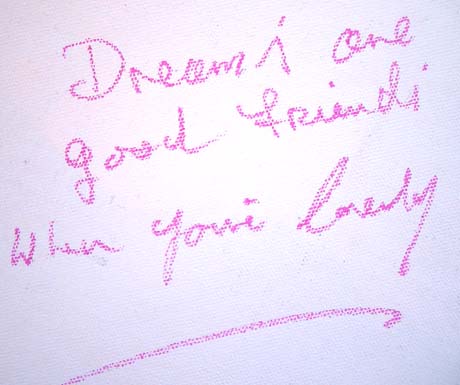 Dreams are
good friends
When your lonely